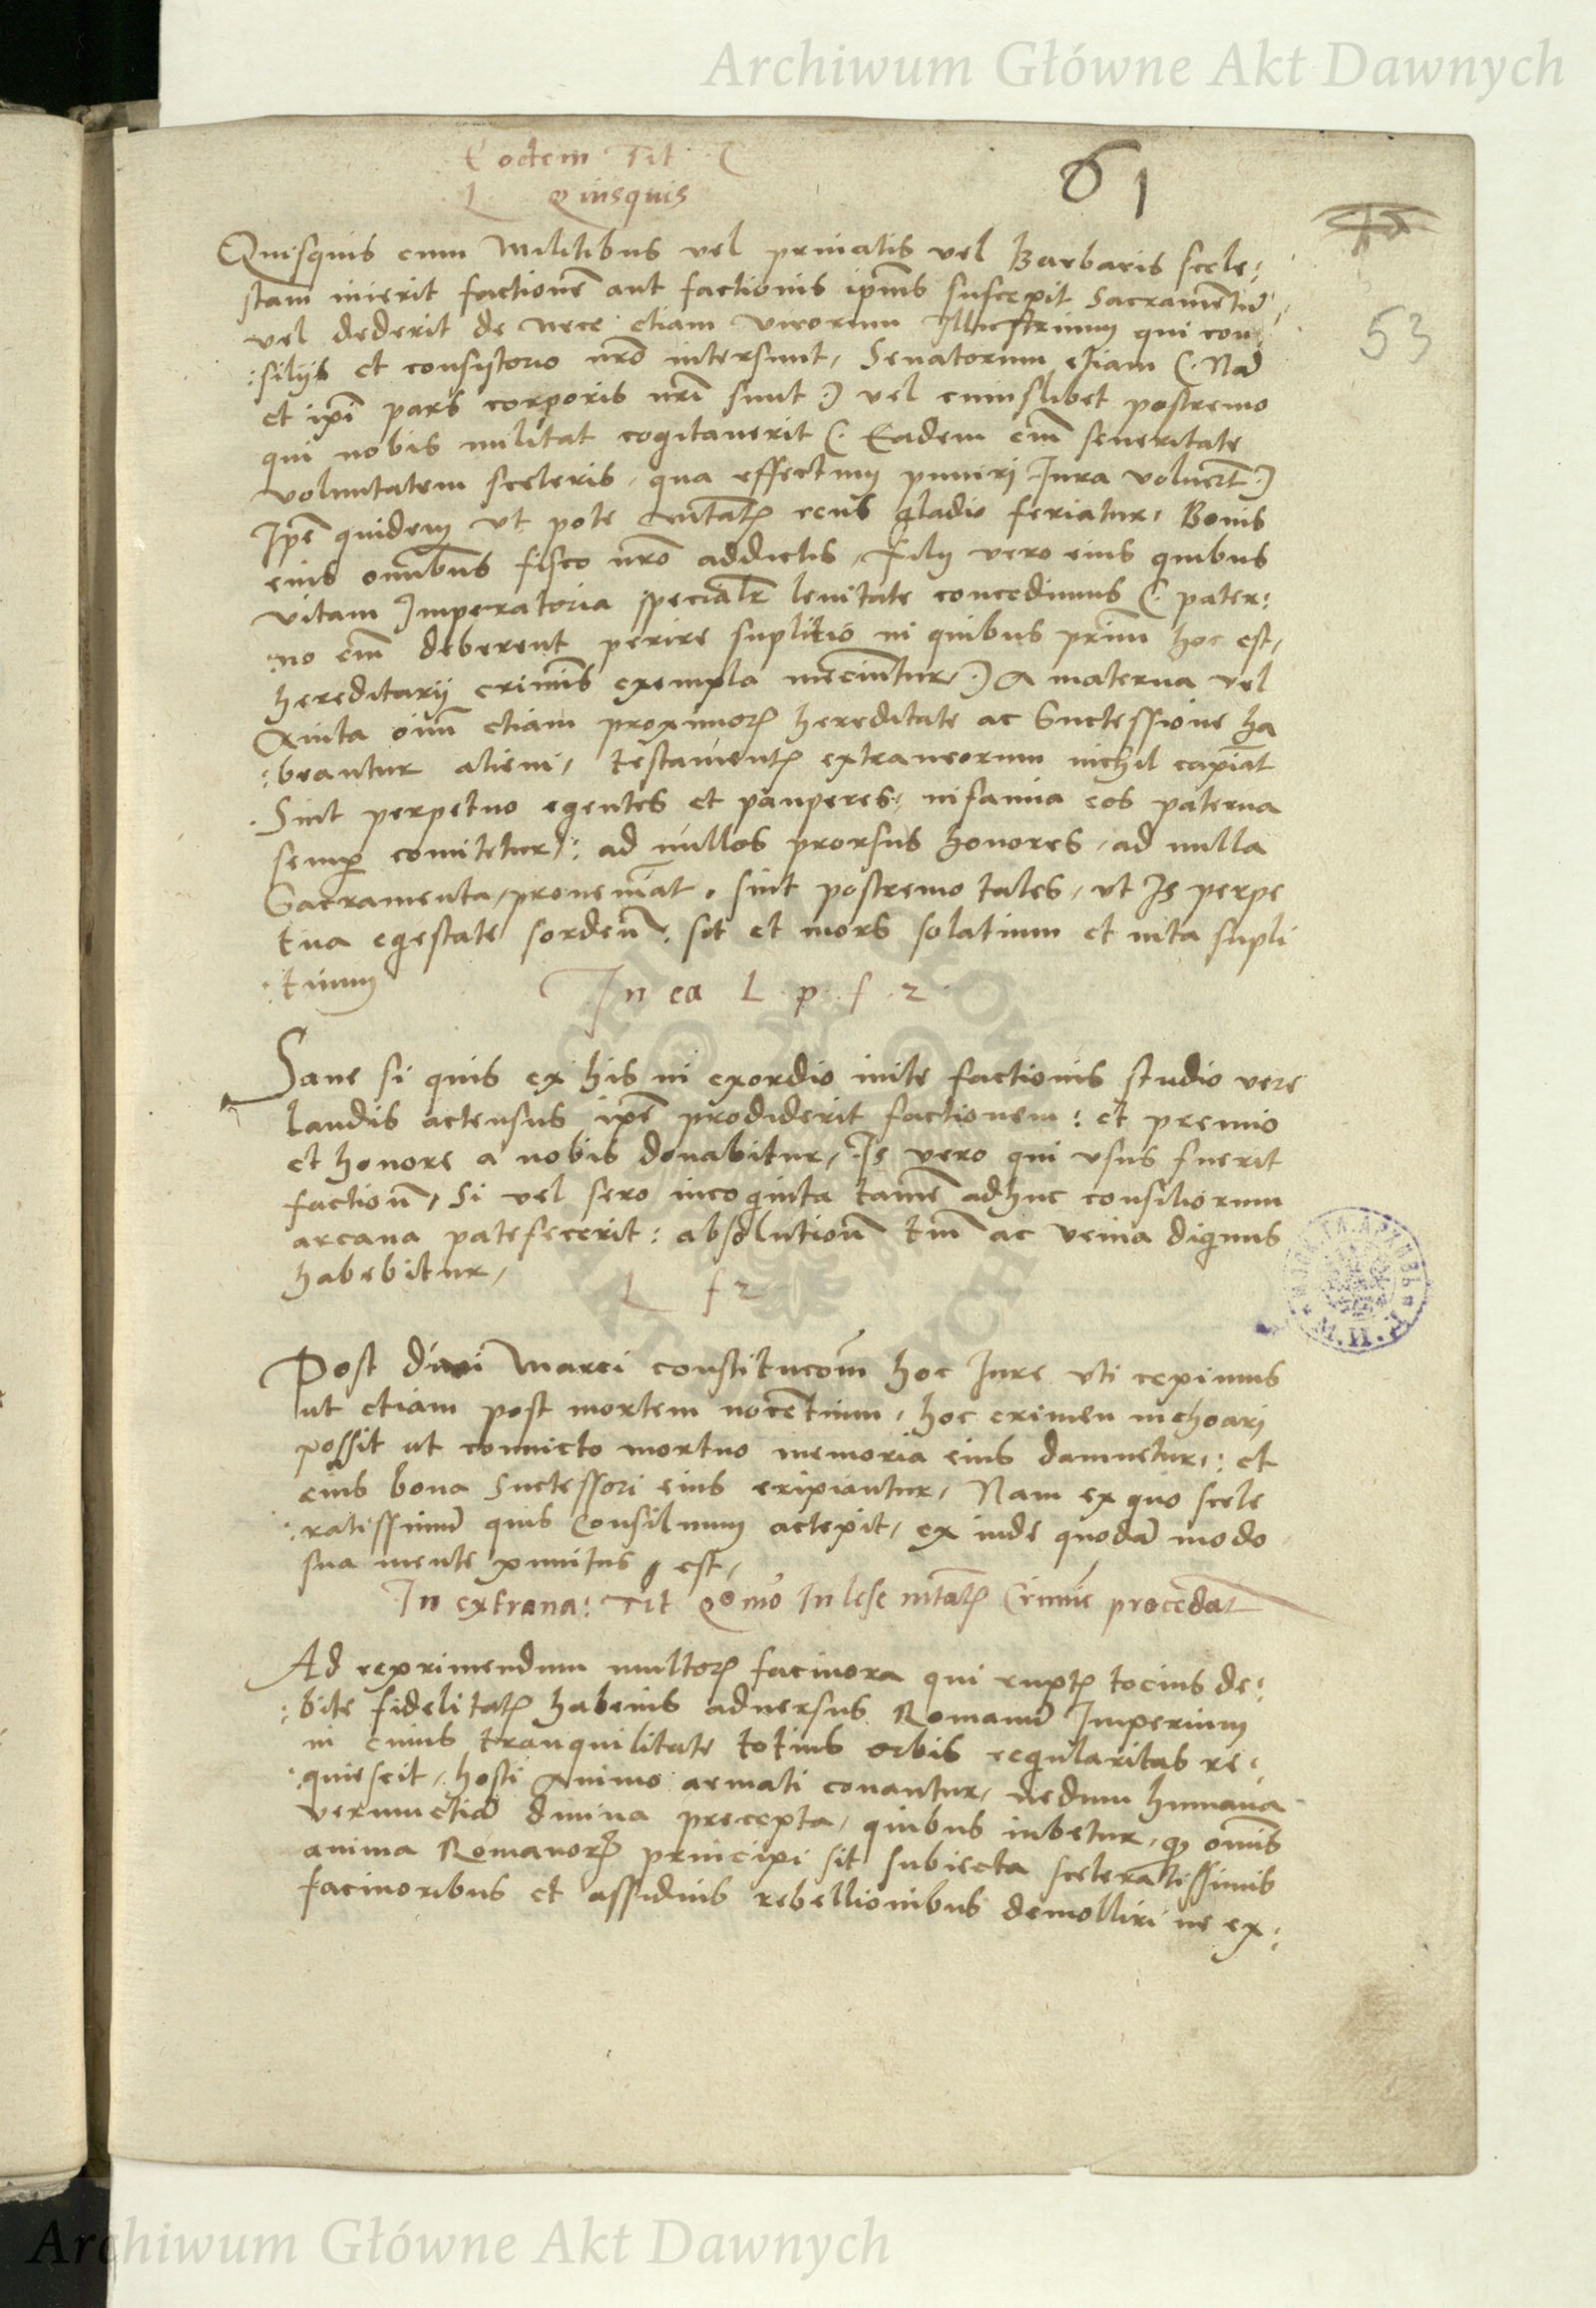 Archiwum Główne Akt Dawnych
Eodem Tit C
L Quisquis
61
53
Quisquis cum Militibus vel privatis vel Barbaris scele:
stam inierit factionē aut factionis ipīus suscepit Sacramentū
vel dederit de nece etiam virorum Illustrium qui con
:siliis et consistorio nrō intersunt, Senatorum etiam (. Nā
et ipī pars corporis nrī sunt :) vel cuiuslibet postremo
qui nobis militat cogitaverit (. Eadem em̄ severitate
voluntatem sceleris, qua effectum puniri Iura voluerūt :)
Ipē quidem ut pote reus gladio feriatur, Bonis
eius omībus fisco nrō addictis, filij vero eius quibus
vitam Imperatoria specialr̄ lenitate concedimus (. pater:
:no em̄ deberent perire suplitio in quibus hoc est,
hereditarij crimīs exempla :) A materna vel
Avita oīm etiam proximorꝫ hereditate ac Suctessione ha
:beantur alieni, testamentꝫ extraneorum nichil capiāt
Sint perpetuo egentes et pauperes: infamia eos paterna
semꝑ comitetur: ad nullos prorsus honores, ad nulla
Sacramenta, proveniāt. sint postremo tales, ut Is perpe
tua egestate sordeñ: sit et mors solatium et vita supli
:tium
In ea L. p. f. 2
Sane si quis ex his in exordio inite factionis studio vere
laudis actensus ipē prodiderit factionem: et premio
et honore a nobis donabitur, Is vero qui usus fuerit
factioñ, Si vel sero incognita tamē adhuc consiliorum
arcana patefecerit: absolutioñ tm̄ ac venia dignus
habebitur,
L f 2
Post divi Marci constitucōm hoc Iure uti cepimus
ut etiam post mortem nocētium, hoc crimen inchoari
possit ut convicto mortuo memoria eius damnetur: et
eius bona Suctessori eius eripiantur, Nam ex quo scele
:ratissimū quis Consilium actepit, ex inde quodā modo
sua mente punitus est,
In extrava: Tit Qōmo In lese Crimīe procedat
Ad reprimendum multorꝫ facinora qui ruptꝫ tocius de:
:bite fidelitatꝫ habenis adversus Romanū Imperium
in cuius tranquilitate totius orbis regularitas re:
:quiescit, hosti Animo armati conantur, nedum humana
verumetiā divina precepta, quibus iubetur, ꝙ omīs
anima Romanorꝫ principi sit subiecta sceleratissimis
facinoribus et assiduis rebellionibus demolliri ne ex:
Archiwum Główne Akt Dawnych